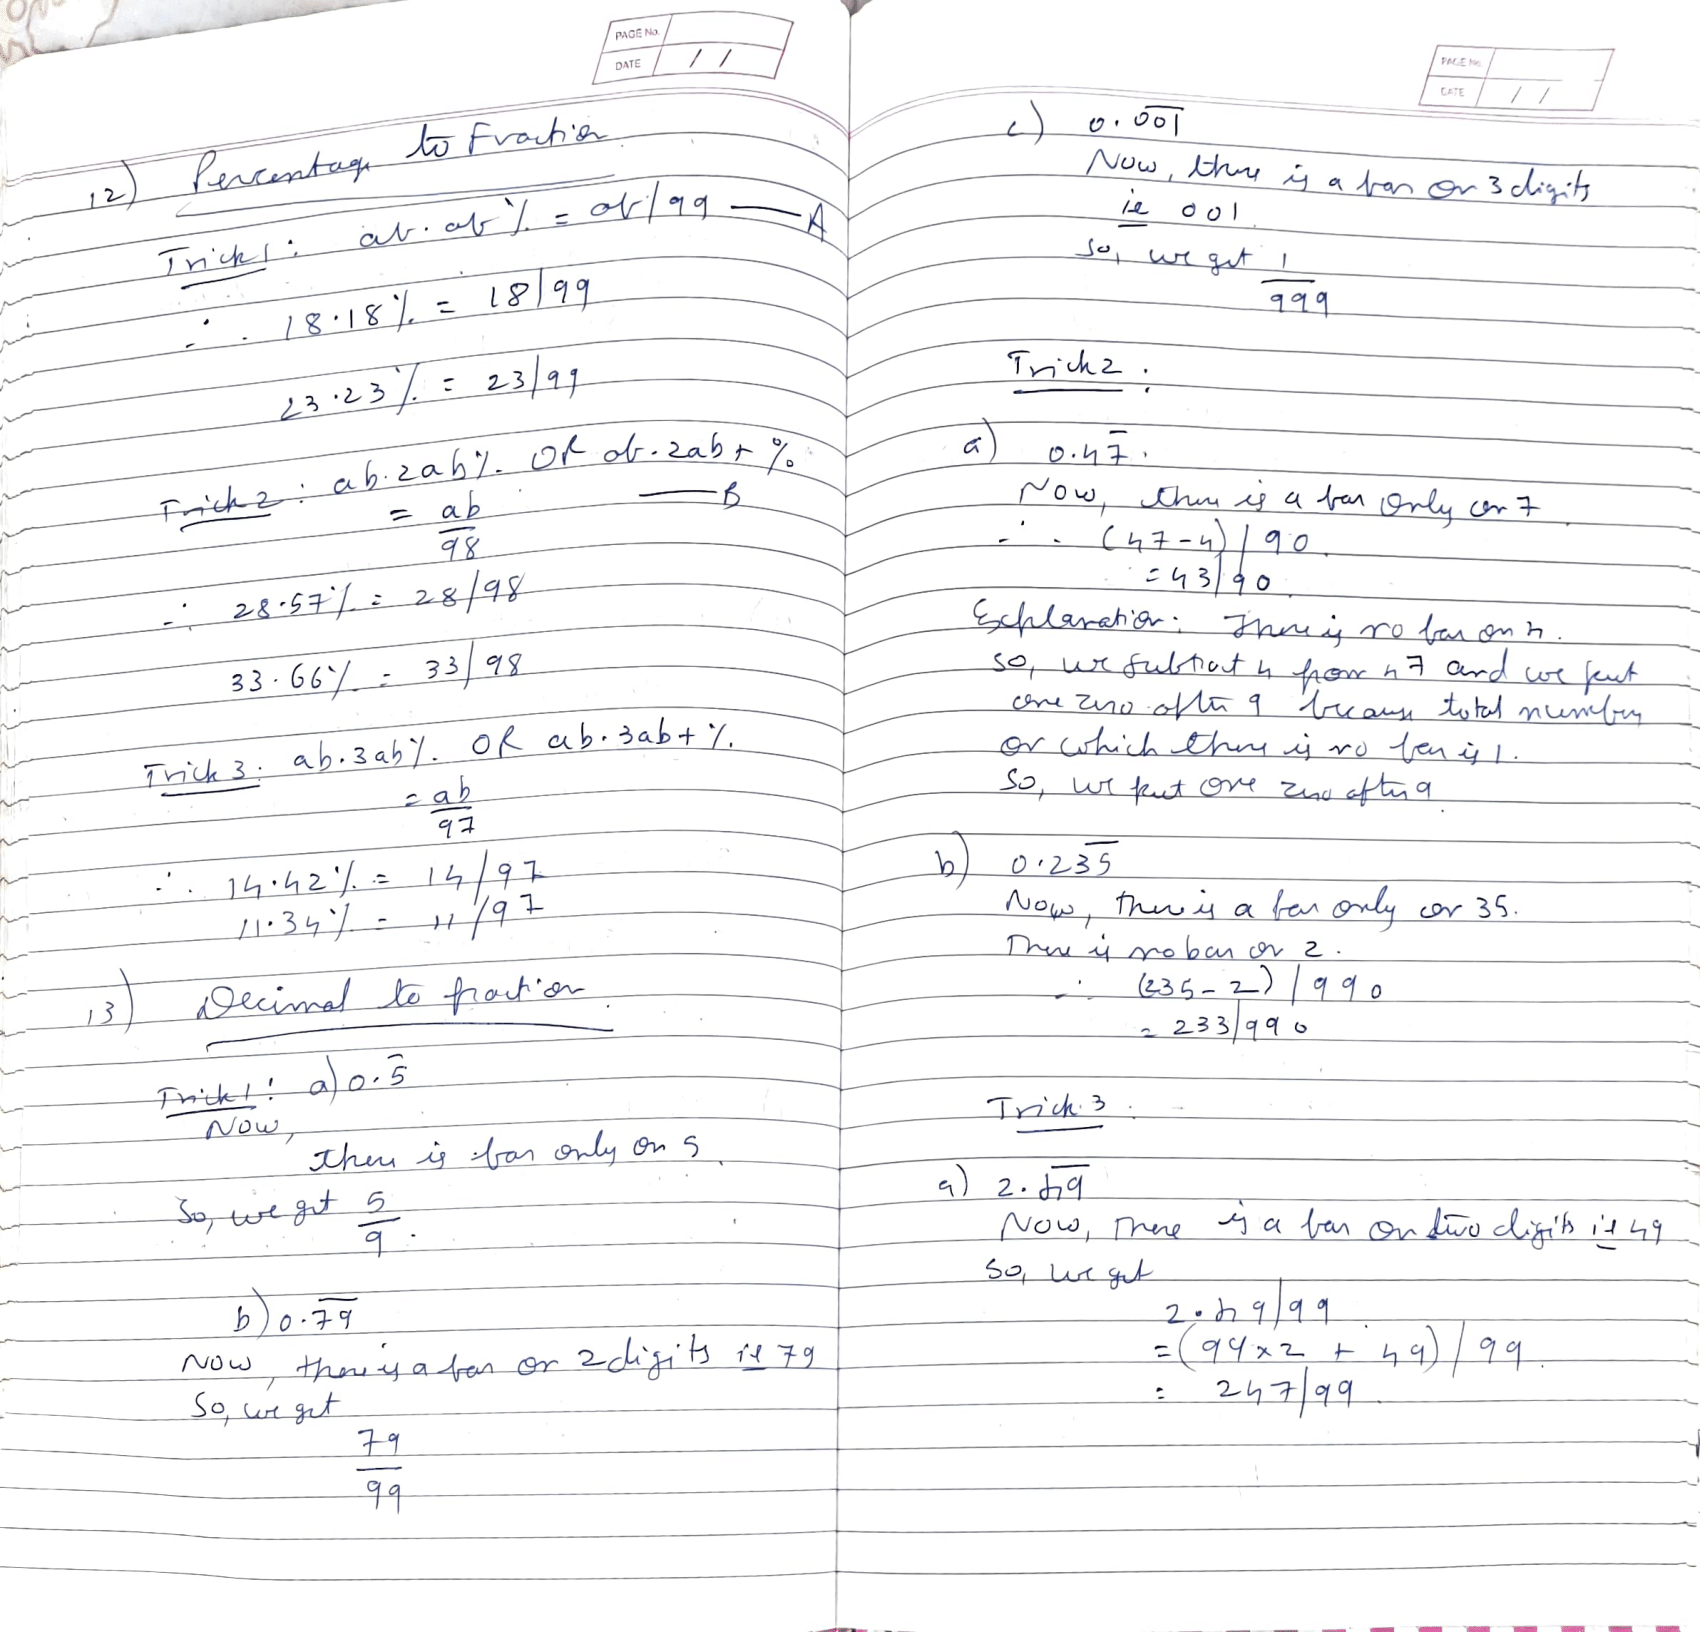 PAGE No.
DATE / /
12) Percentage to Fraction
Trick 1: ab.ab % = ab/99 — A
∴ 18.18 % = 18/99
23.23 % = 23/99
Trick 2: ab.2ab % OR ab.2ab+ %
= ab/98 — B
∴ 28.57 % = 28/98
33.66 % = 33/98
Trick 3: ab.3ab % OR ab.3ab+ %
= ab/97
∴ 14.42 % = 14/97
11.34 % = 11/97
13) Decimal to fraction
Trick 1: a) 0.5̅
Now,
there is bar only on 5
So, we get 5/9.
b) 0.7̅9̅
Now, there is a bar on 2 digits ie 79
So, we get
79/99
PAGE No.
DATE / /
c) 0.0̅0̅1̅
Now, there is a bar on 3 digits
ie 001
So, we get 1/999
Trick 2:
a) 0.47̅.
Now, there is a bar only on 7
∴ (47-4)/90
= 43/90
Explanation: There is no bar on 4.
So, we subtract 4 from 47 and we put
one zero after 9 because total number
on which there is no bar is 1.
So, we put one zero after 9
b) 0.23̅5̅
Now, there is a bar only on 35.
There is no bar on 2.
∴ (235-2)/990
= 233/990
Trick 3:
a) 2.4̅9̅
Now, there is a bar on two digits ie 49
So, we get
2.49/99
= (99x2 + 49)/99
= 247/99